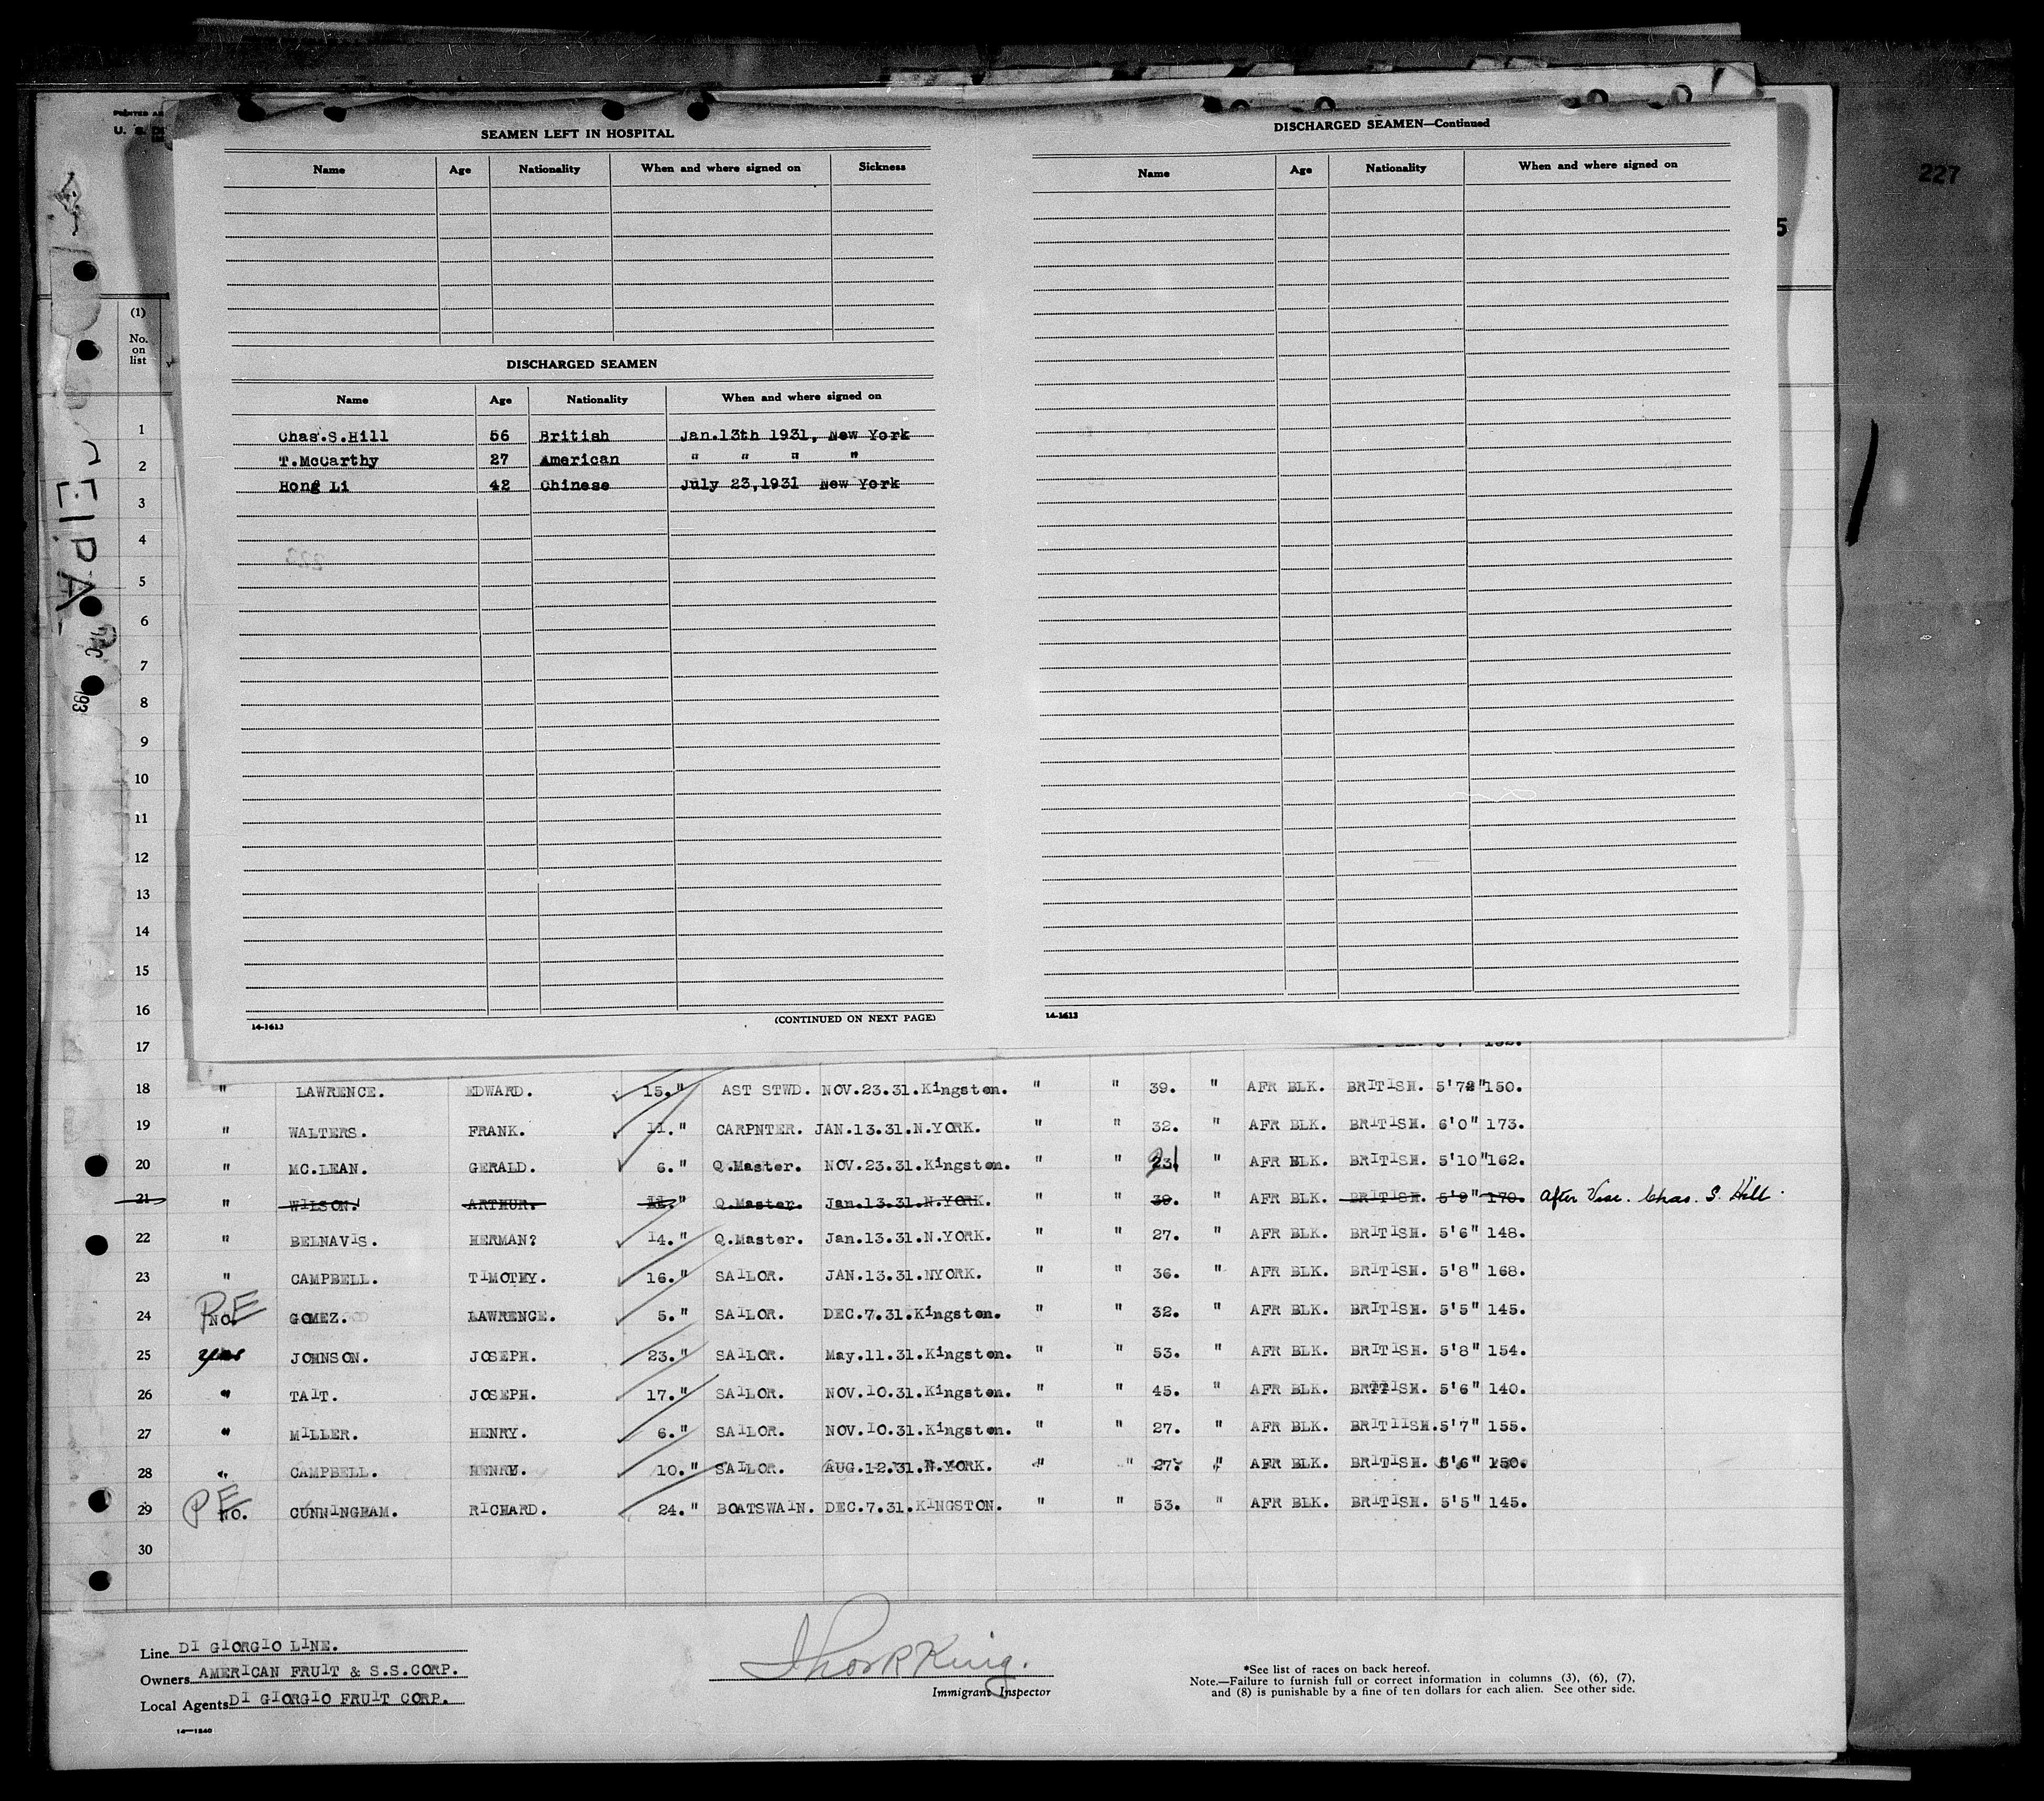 PRINTED
U. S.
227
5
SEAMEN LEFT IN HOSPITAL
Name Age Nationality When and where signed on Sickness
DISCHARGED SEAMEN
Name Age Nationality When and where signed on
Chas.S.Hill 56 British Jan.13th 1931, New York
T.McCarthy 27 American " " " "
Hong Li 42 Chinese July 23,1931 New York
14-1613 (CONTINUED ON NEXT PAGE)
DISCHARGED SEAMEN—Continued
Name Age Nationality When and where signed on
14-1613
CEIPA
(1)
No.
on
list
1
2
3
4
5
6
7
8
9
10
11
12
13
14
15
16
17
18 " LAWRENCE. EDWARD. 15." AST STWD. NOV.23.31.Kingston. " " 39. " AFR BLK. BRITISH. 5'7½"150.
19 " WALTERS. FRANK. 11." CARPNTER. JAN.13.31.N.YORK. " " 32. " AFR BLK. BRITISH. 6'0" 173.
20 " MC.LEAN. GERALD. 6." Q.Master. NOV.23.31.Kingston. " " " AFR BLK. BRITISH. 5'10"162.
21 " WILSON. ARTHUR. 11." Q.Master. Jan.13.31.N.YORK. " " 39. " AFR BLK. BRITISH. 5'9" 170. After Vise. Chas. S. Hill.
22 " BELNAVIS. HERMAN? 14." Q.Master. Jan.13.31.N.YORK. " " 27. " AFR BLK. BRITISH. 5'6" 148.
23 " CAMPBELL. TIMOTHY. 16." SAILOR. JAN.13.31.NYORK. " " 36. " AFR BLK. BRITISH. 5'8" 168.
24 PE NO. GOMEZ. LAWRENCE. 5." SAILOR. DEC.7.31.Kingston. " " 32. " AFR BLK. BRITISH. 5'5" 145.
25 yes JOHNSON. JOSEPH. 23." SAILOR. May.11.31.Kingston. " " 53. " AFR BLK. BRITISH. 5'8" 154.
26 " TAIT. JOSEPH. 17." SAILOR. NOV.10.31.Kingston. " " 45. " AFR BLK. BRTTISH. 5'6" 140.
27 " MILLER. HENRY. 6." SAILOR. NOV.10.31.Kingston. " " 27. " AFR BLK. BRITIISH.5'7" 155.
28 " CAMPBELL. HENRY. 10." SAILOR. AUG.12.31.N.YORK. " " 27. " AFR BLK. BRITISH. 5'6" 150.
29 PE NO. CUNNINGHAM. RICHARD. 24." BOATSWAIN. DEC.7.31.KINGSTON. " " 53. " AFR BLK. BRITISH. 5'5" 145.
30
Line DI GIORGIO LINE.
Owners AMERICAN FRUIT & S.S.CORP.
Local Agents DI GIORGIO FRUIT CORP.
14—1240
Thos R King.
Immigrant Inspector
*See list of races on back hereof.
Note.—Failure to furnish full or correct information in columns (3), (6), (7),
and (8) is punishable by a fine of ten dollars for each alien. See other side.